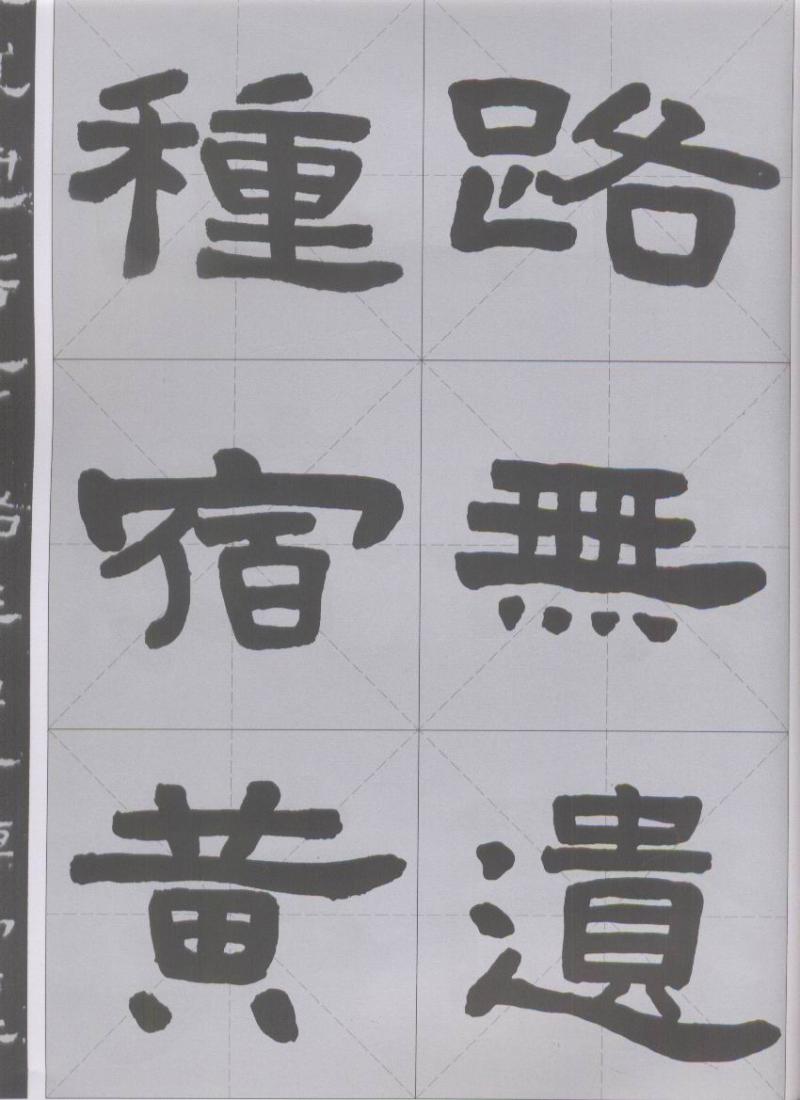 路無遺
種宿黃